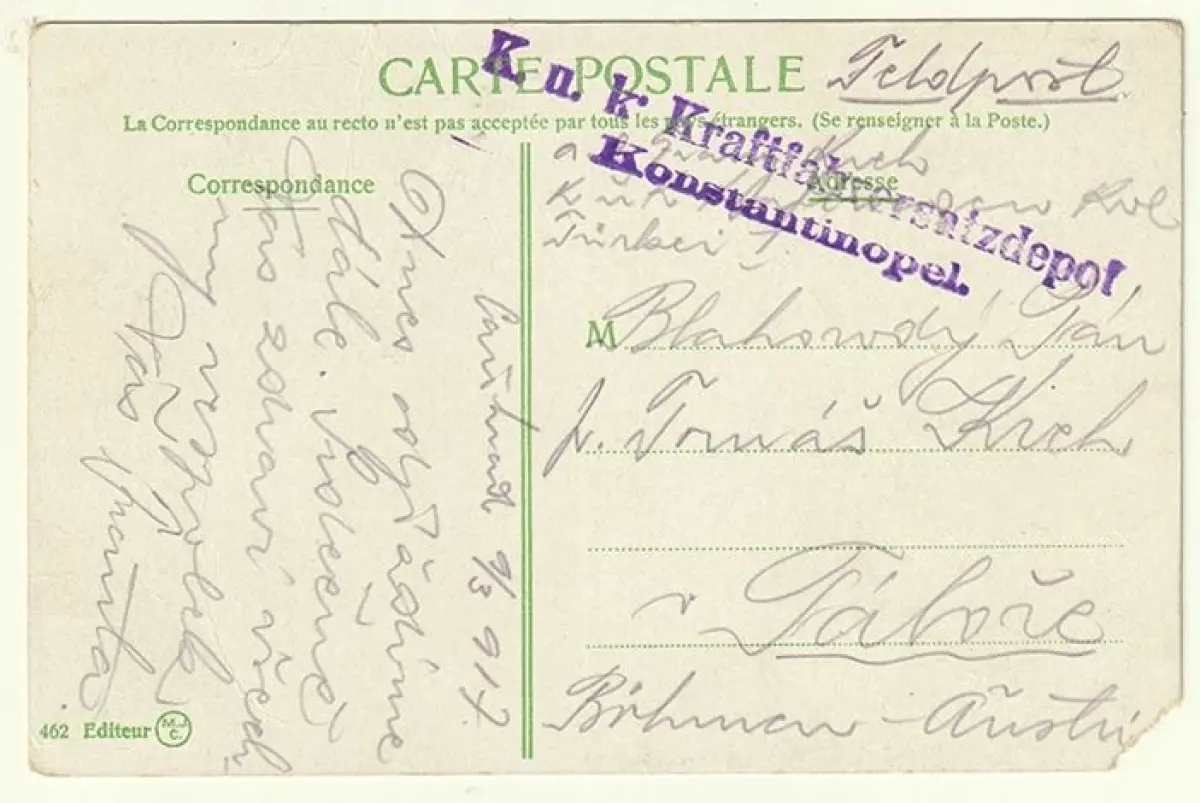 CARTE POSTALE
Feldpost
La Correspondance au recto n'est pas acceptée par tous les pays étrangers. (Se renseigner à la Poste.)
K. u. k. Kraftfahrersatzdepot
Konstantinopel.
Correspondance
Adresse
Krch
Türkei
M Blahowdý Pán
p. Tomáš Krch
v Táboře
Böhmen - Austri
9/3 917
Dnes odjíždíme
dále. Srdečně
Vás zdraví všech
Váš
462 Editeur M.J.C.